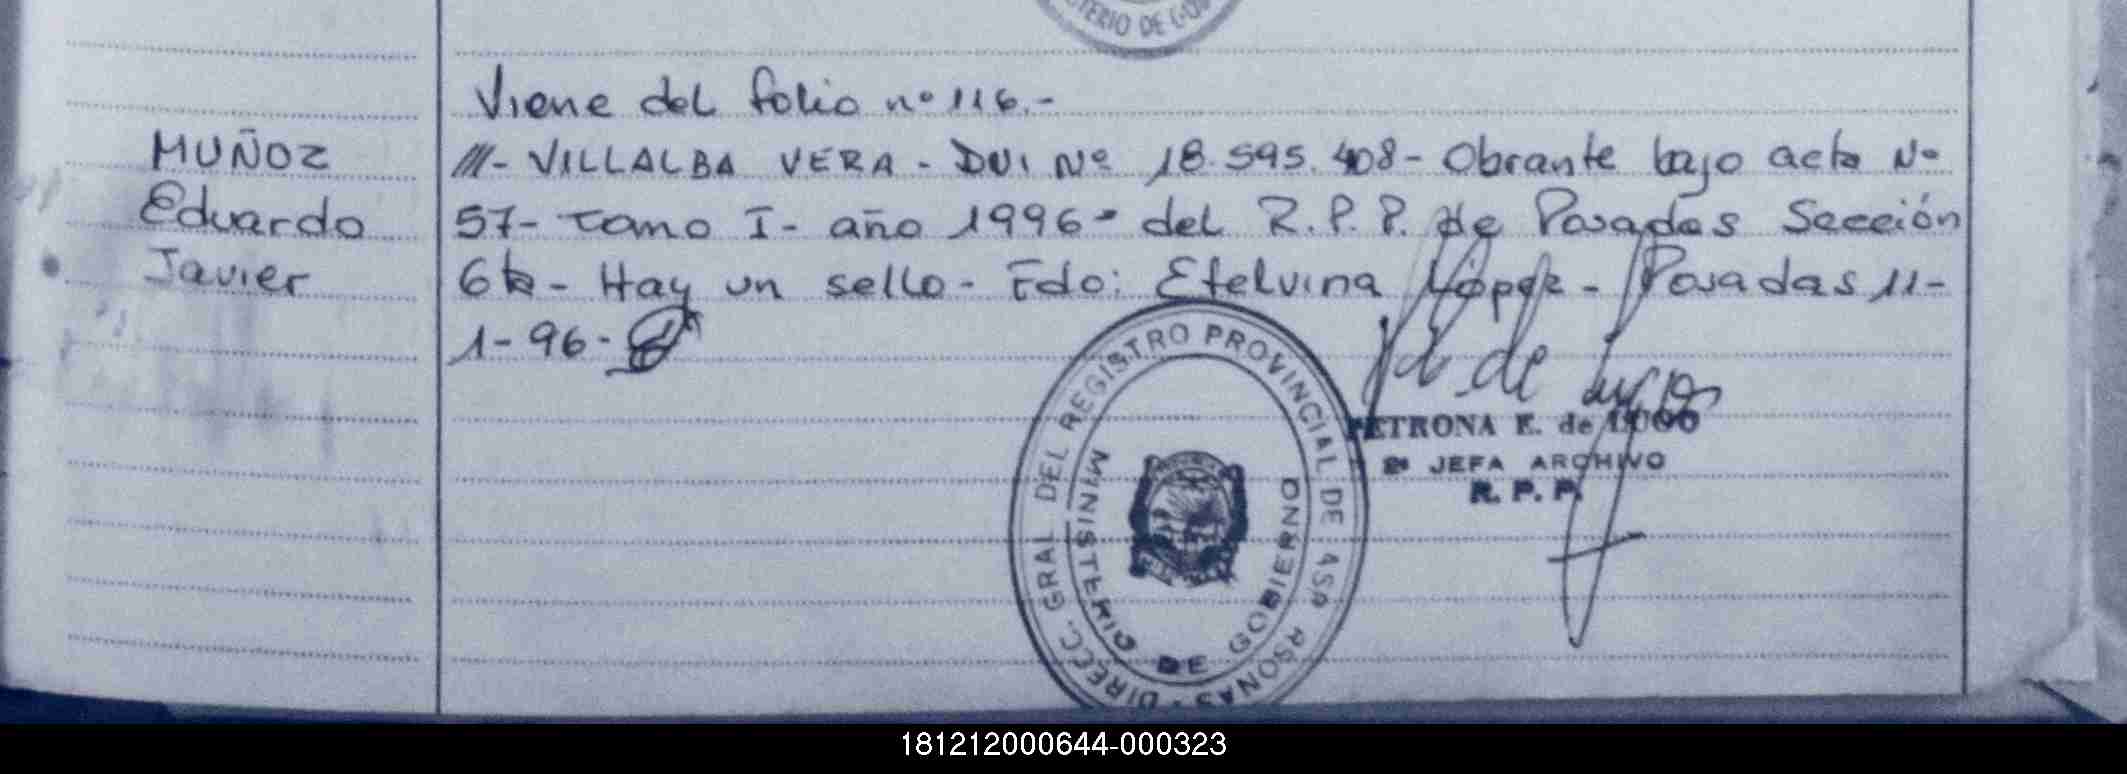 MINISTERIO DE GOB
Viene del folio nº 116.-
MUÑOZ
Eduardo
Javier
///- VILLALBA VERA - DNI Nº 18.595.408 - Obrante bajo acta Nº
57- Tomo I- año 1996- del R.P.P. de Posadas Sección
6ta - Hay un sello - Fdo: Etelvina López - Posadas 11-
1-96-
DIRECC. GRAL DEL REGISTRO PROVINCIAL DE
MINISTERIO DE GOBIERNO
PETRONA E. de LUGO
2ª JEFA ARCHIVO
R. P. P.
181212000644-000323